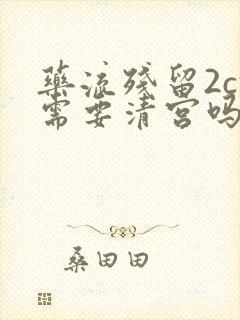 药流残留2c
需要清宫吗
桑田田